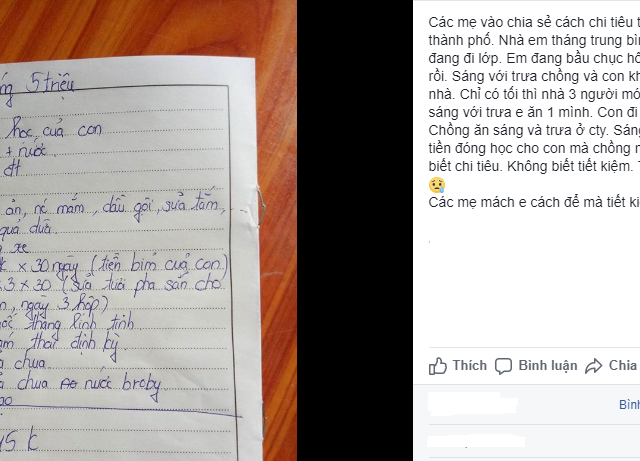 5 triệu
học của con
+ nước
đt
ăn, nc mắm, dầu gội, sữa tắm,
quả dưa
xe
k x 30 ngày (tiền bỉm của con)
x 3 x 30 (sữa tươi pha sẵn cho
ngày 3 hộp)
tháng linh tinh
thai định kỳ.
chua
chua nước
5 k
Các mẹ vào chia sẻ cách chi tiêu t
thành phố. Nhà em tháng trung bì
đang đi lớp. Em đang bầu chục hô
rồi. Sáng với trưa chồng và con kh
nhà. Chỉ có tối thì nhà 3 người mó
sáng với trưa e ăn 1 mình. Con đi
Chồng ăn sáng và trưa ở cty. Sáng
tiền đóng học cho con mà chồng n
biết chi tiêu. Không biết tiết kiệm. T
Các mẹ mách e cách để mà tiết ki
Thích Bình luận Chia
Bìn